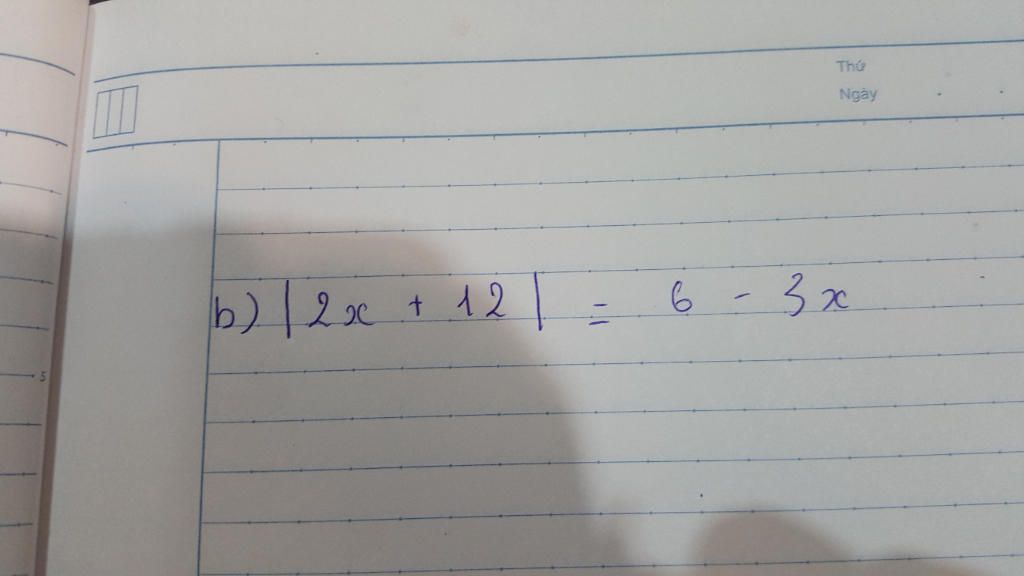 Thứ
Ngày
b) |2x + 12| = 6 - 3x
5